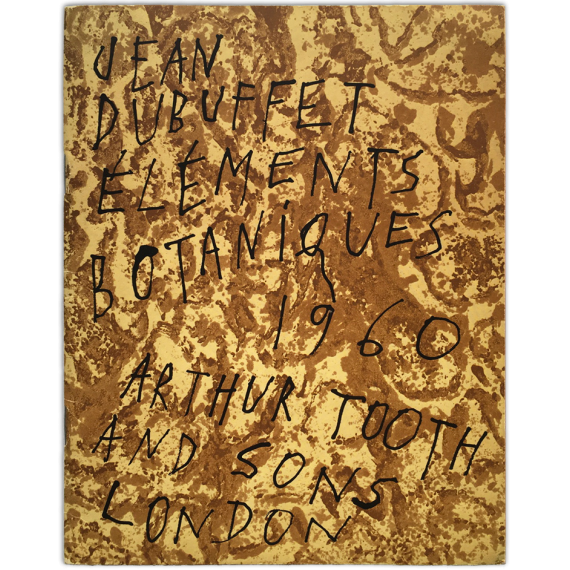 JEAN
DUBUFFET
ÉLÉMENTS
BOTANIQUES
1960
ARTHUR TOOTH
AND SONS
LONDON